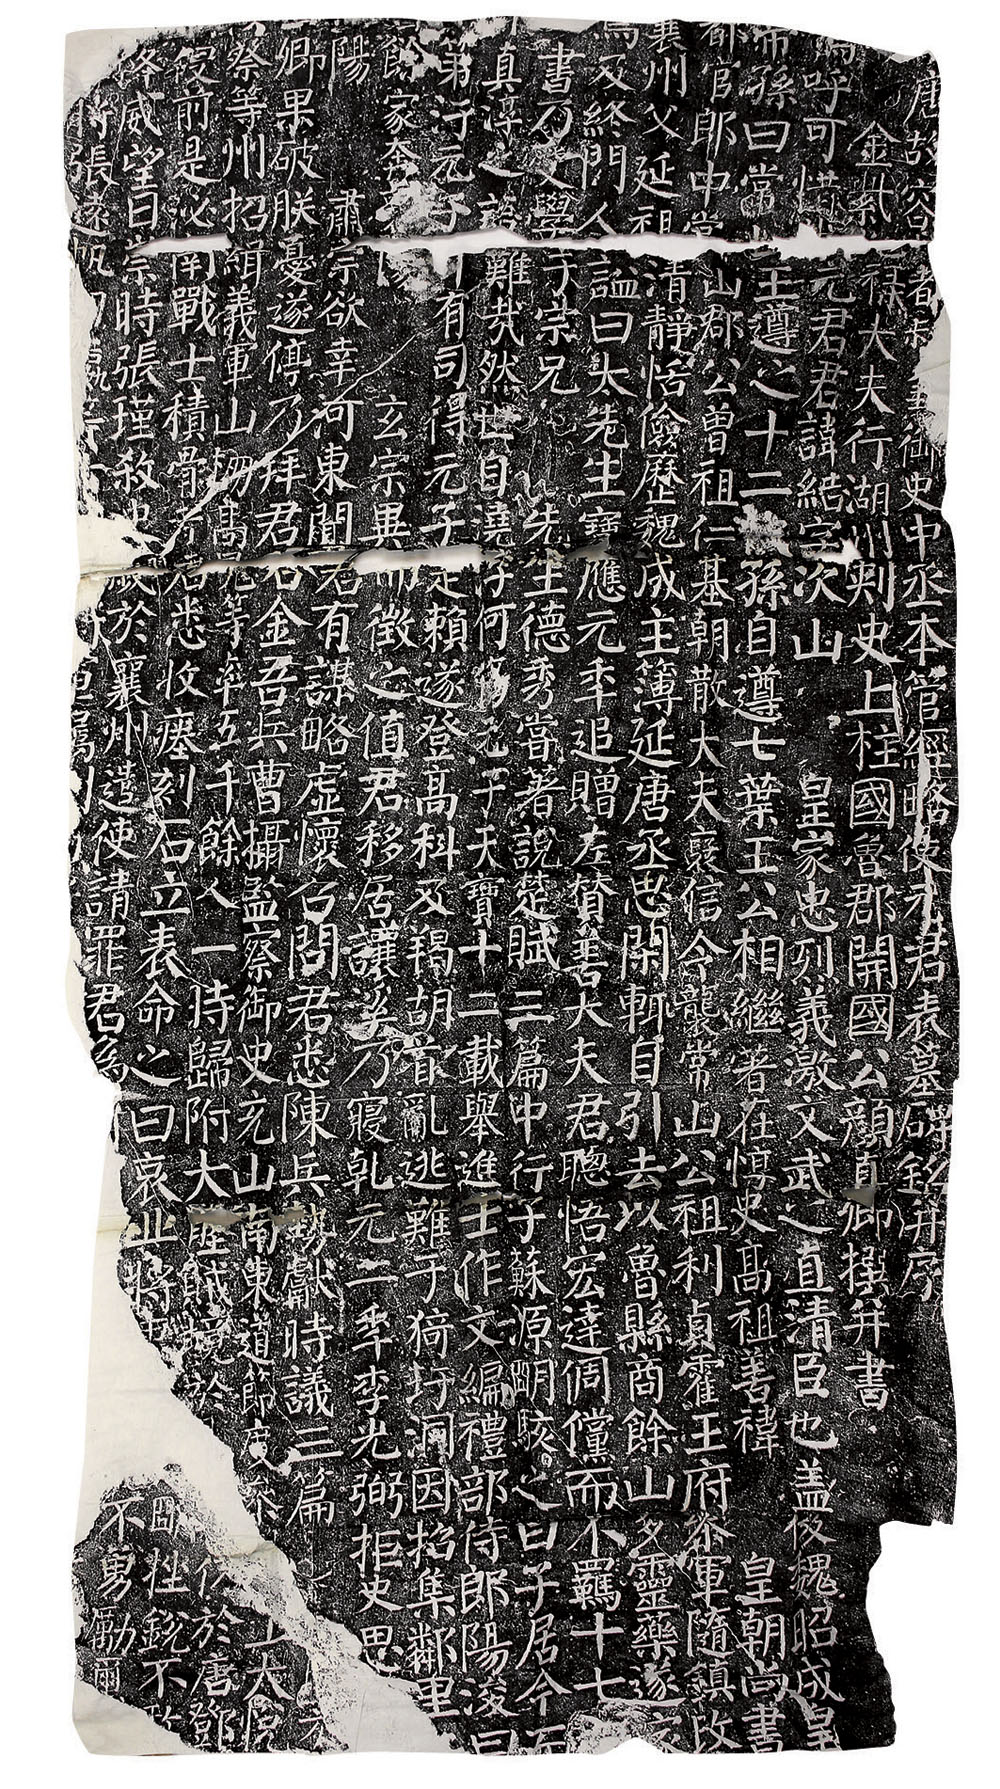 唐故容者兼御史中丞本管經略使元君表墓碑銘并序
金紫祿大夫行湖州刾史上柱國魯郡開國公顏真卿撰并書
嗚呼可惜元君君諱結字次山皇家忠烈義激文武之直清臣也蓋後魏昭成皇
帝孫曰常山王遵之十二孫自遵七葉王公相繼著在惇史高祖善禕皇朝尚書
都官郎中常山郡公曾祖仁基朝散大夫襃信令襲常山公祖利貞霍王府參軍隨鎮改
襄州父延祖清靜恬儉歷魏成主簿延唐丞思閑輒自引去以魯縣商餘山多靈藥遂家
焉及終門人謚曰太先生寶應元年追贈左贊善大夫君聰悟宏達倜儻而不羈十七
書乃受學于宗兄先生德秀嘗著說楚賦三篇中行子蘇源明駭之曰子居今而
真淳之語難哉然世自澆浮何傷元子天寶十二載舉進士作文編禮部侍郎陽浚曰
第汙元子有司得元子是賴遂登高科及羯胡首亂逃難于猗玗洞因招集鄰里
餘家奔玄宗異而徵之值君移居讓溪乃寢乾元二年李光弼拒史思
陽肅宗欲幸河東聞君有謀略虛懷召問君悉陳兵勢獻時議三篇上大悅
卿果破朕憂遂停乃拜君右金吾兵曹攝監察御史充山南東道節度參仍於唐鄧
蔡等州招緝義軍山棚高晃等率五千餘人一時歸附大壓賊境於挫銳不敢
役前是泌南戰士積骨者君悉收瘞刻石立表命之曰哀丘將士不勇勵爾
降威望日崇時張瑾殺史於襄州遣使請罪君為
將張遠帆